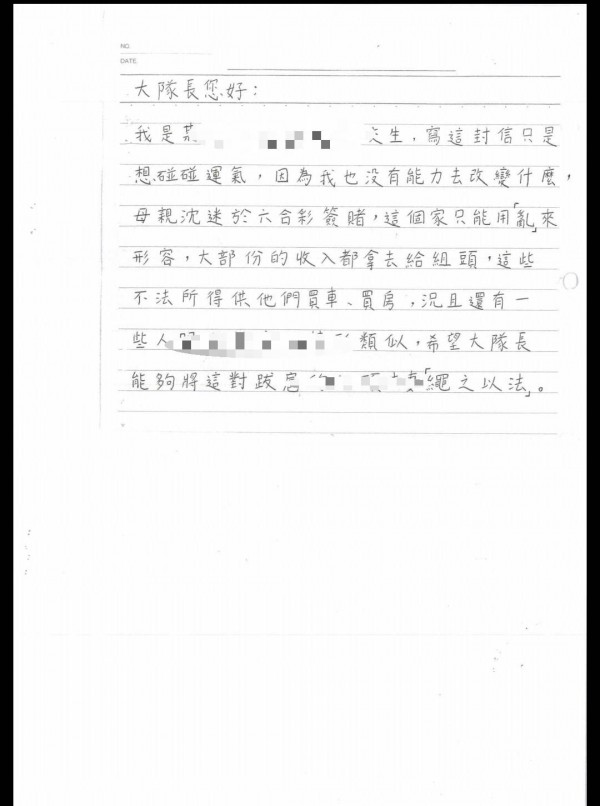 NO.
DATE.
大隊長您好：
我是某 生，寫這封信只是
想碰碰運氣，因為我也没有能力去改變什麼，
母親沈迷於六合彩簽賭，這個家只能用「亂」來
形容，大部份的收入都拿去給組頭，這些
不法所得供他們買車、買房，況且還有一
些人 類似，希望大隊長
能夠將這對跋扈 「繩之以法」。